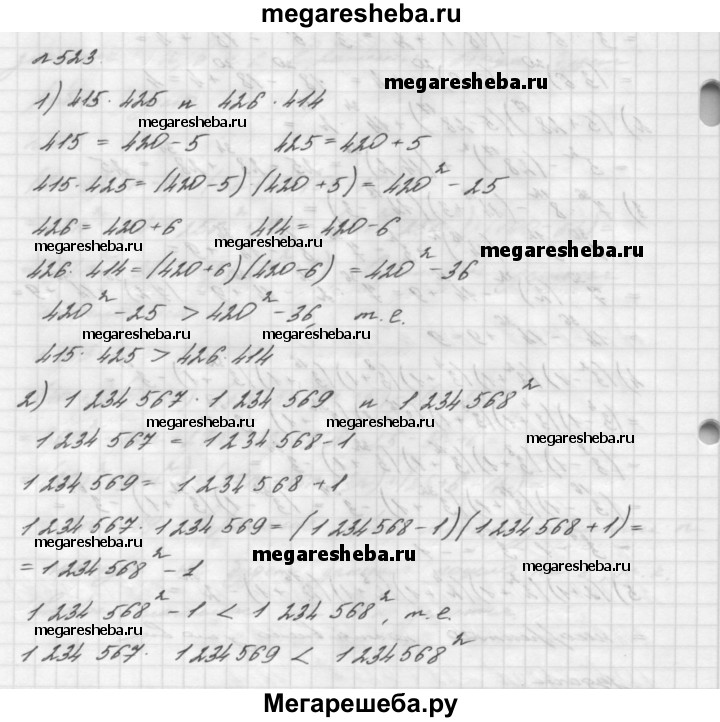 megaresheba.ru
№523
megaresheba.ru
1) 415·425 и 426·414
megaresheba.ru
415 = 420-5 425 = 420+5
415·425 = (420-5)·(420+5) = 420² - 25
426 = 420+6 414 = 420-6
megaresheba.ru megaresheba.ru megaresheba.ru
426·414 = (420+6)(420-6) = 420² - 36
420² - 25 > 420² - 36 т.е.
megaresheba.ru megaresheba.ru
415·425 > 426·414
2) 1 234 567 · 1 234 569 и 1 234 568²
megaresheba.ru megaresheba.ru megaresheba.ru
1 234 567 = 1 234 568 - 1
1 234 569 = 1 234 568 + 1
1 234 567 · 1 234 569 = (1 234 568 - 1)(1 234 568 + 1) =
megaresheba.ru megaresheba.ru
= 1 234 568² - 1
1 234 568² - 1 < 1 234 568², т.е.
megaresheba.ru
1 234 567 · 1 234 569 < 1 234 568²
Мегарешеба.ру